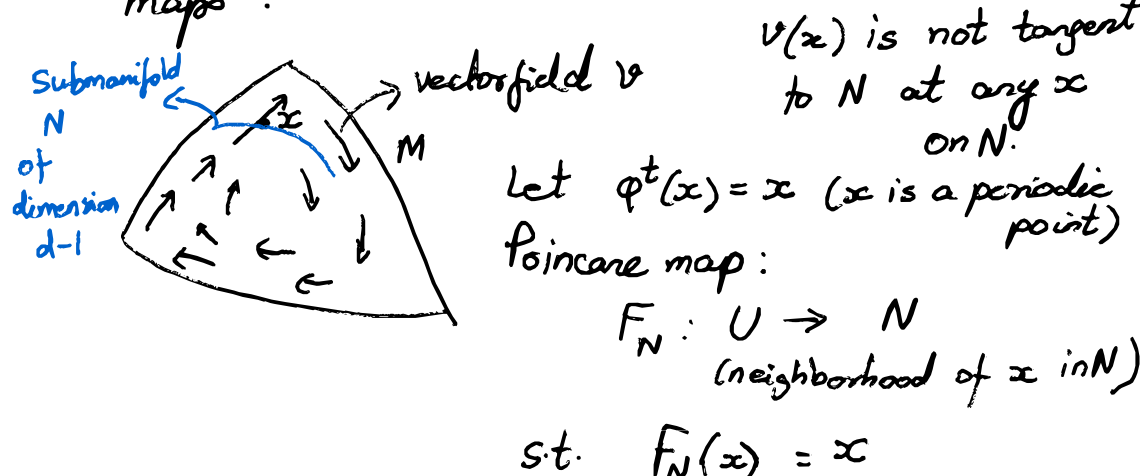 maps :
Submanifold
N
of
dimension
d-1
x
vectorfield v
M
v(x) is not tangent
to N at any x
on N.
Let φᵗ(x) = x (x is a periodic
point)
Poincare map :
F_N : U → N
(neighborhood of x in N)
s.t. F_N(x) = x